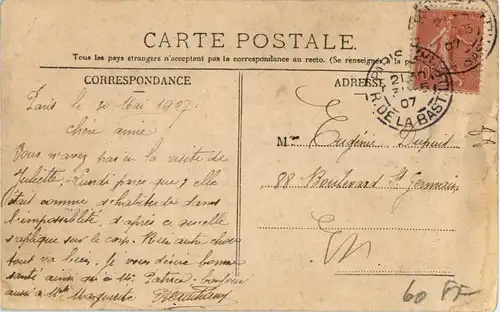 CARTE POSTALE
Tous les pays étrangers n'acceptent pas la correspondance au recto. (Se renseigner à la
CORRESPONDANCE
ADRESSE
Paris le 30 Mai 1907
Chère amie
Vous n'avez pas eu la visite de
Juliette, Lundi parce que elle
était comme d'habitude dans
l'impossibilité, d'après ce qu'elle
s'aplique sur le corps. Rien autre chose
tout va bien. Je vous désire bonne
santé ainsi qu'à Mr. Patrice. bonjour
aussi à Mlle Marguerite
M Eugénie Dupuit
88 Boulevard St Germain
E.V.
PARIS
21
5
07
R. DE LA BASTI
07
10
60 FF